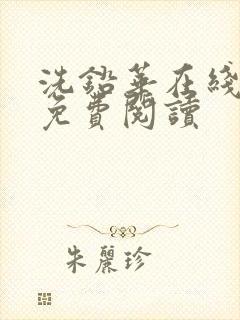 洗鉛華在綫
免費閱讀
朱麗珍